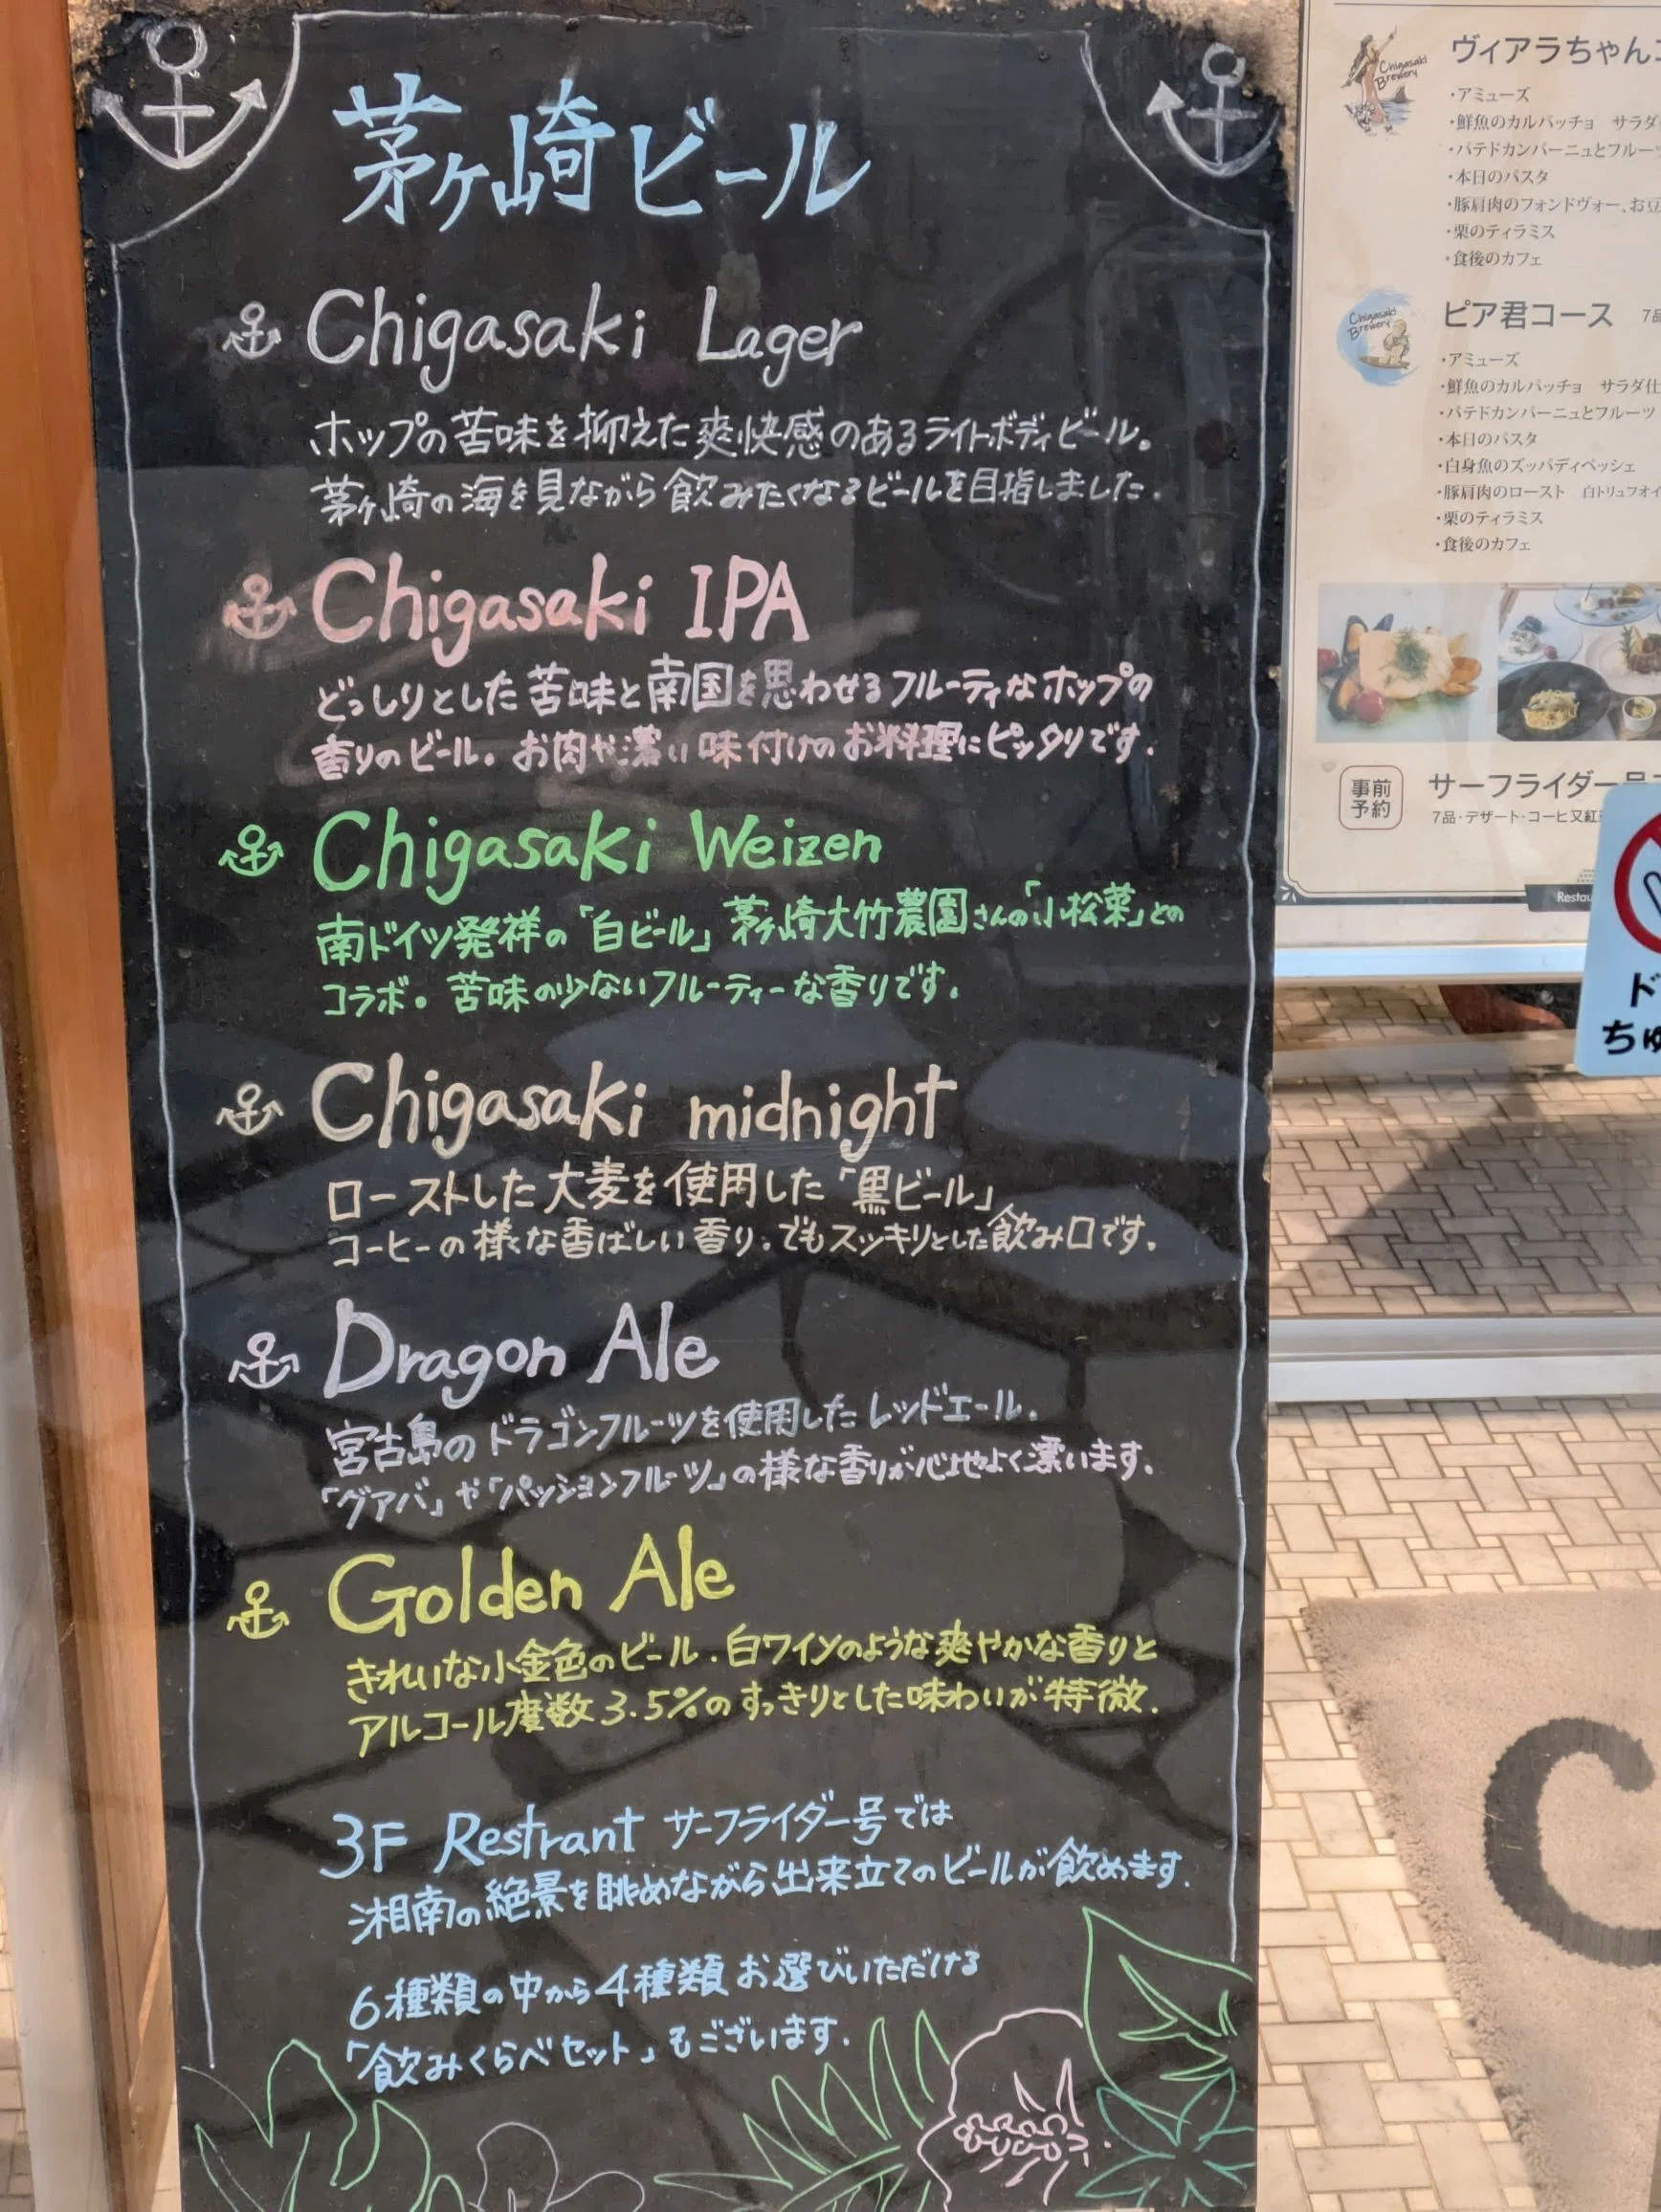 茅ヶ崎ビール
Chigasaki Lager
ホップの苦味を抑えた爽快感のあるライトボディビール。
茅ヶ崎の海を見ながら飲みたくなるビールを目指しました.
Chigasaki IPA
どっしりとした苦味と南国を思わせるフルーティなホップの
香りのビール。お肉や濃い味付けのお料理にピッタリです.
Chigasaki Weizen
南ドイツ発祥の「白ビール」茅ヶ崎大竹農園さんの「小松菜」との
コラボ。苦味の少ないフルーティーな香りです.
Chigasaki midnight
ローストした大麦を使用した「黒ビール」
コーヒーの様な香ばしい香り.でもスッキリとした飲み口です.
Dragon Ale
宮古島のドラゴンフルーツを使用したレッドエール.
「グアバ」や「パッションフルーツ」の様な香りが心地よく漂います.
Golden Ale
きれいな小金色のビール.白ワインのような爽やかな香りと
アルコール度数3.5%のすっきりとした味わいが特徴.
3F Restrant サーフライダー号では
湘南の絶景を眺めながら出来立てのビールが飲めます.
6種類の中から4種類お選びいただける
「飲みくらべセット」もございます.
Chigasaki
Brewery
ヴィアラちゃん
・アミューズ
・鮮魚のカルパッチョ サラダ
・パテドカンパーニュとフルーツ
・本日のパスタ
・豚肩肉のフォンドヴォー、お豆
・栗のティラミス
・食後のカフェ
Chigasaki
Brewery
ピア君コース 7品
・アミューズ
・鮮魚のカルパッチョ サラダ仕
・パテドカンパーニュとフルーツ
・本日のパスタ
・白身魚のズッパディペッシェ
・豚肩肉のロースト 白トリュフオイ
・栗のティラミス
・食後のカフェ
事前
予約
サーフライダー号
7品・デザート・コーヒ又紅
Restau
ド
ちゅ
C